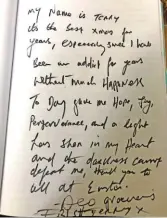 My Name is Terry
its the best xmas for
years, especially since I have
been an addict for years
without much Happiness
To Day gave me Hope, Joy,
Perserverance, and a light
has shon in my Heart
and the darkness cannot
defeat me, thank you to
all at